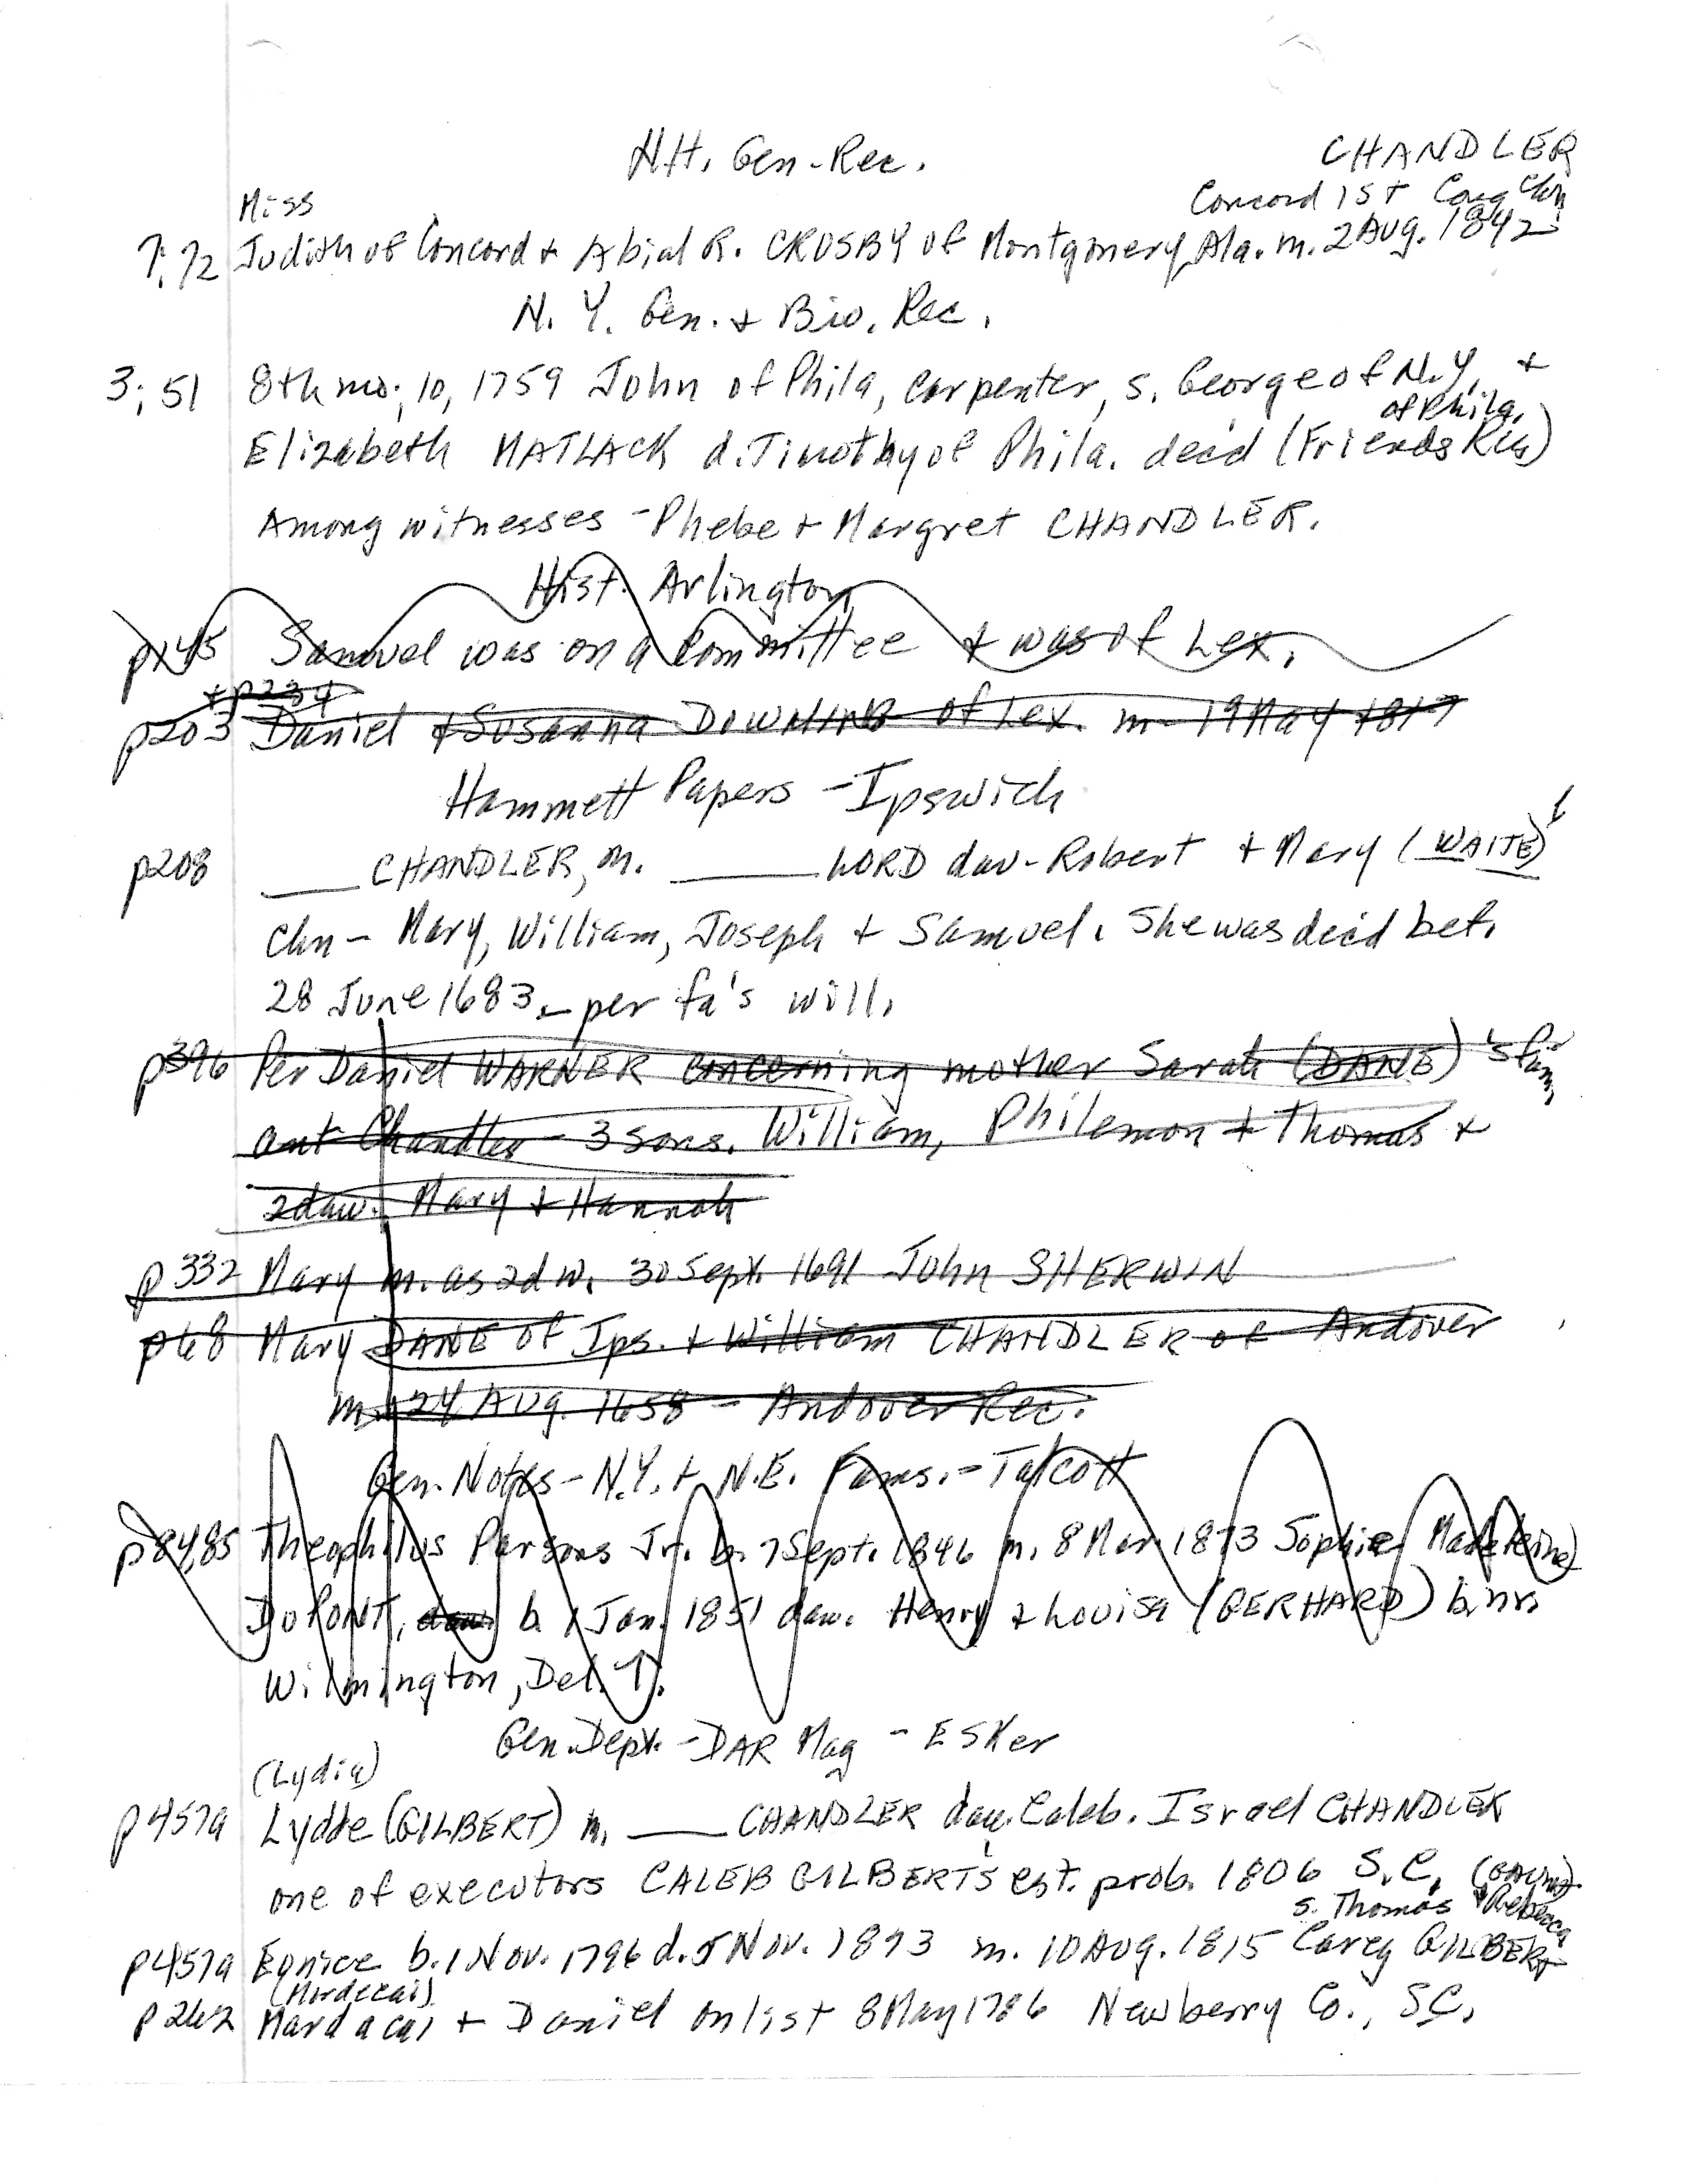 N.H. Gen-Rec.
CHANDLER
Miss
Concord 1st Cong Chh
7:72 Judith of Concord + Abial R. CROSBY of Montgomery, Ala. m. 2 Aug. 1842
N. Y. Gen. + Bio. Rec.
3:51 8th mo; 10, 1759 John of Phila, carpenter, s. George of N.Y. +
of Phila.
Elizabeth MATLACK d. Timothy of Phila. decd (Friends Rec)
Among witnesses - Phebe + Margret CHANDLER.
Hist. Arlington
p145 Samuel was on a Committee + was of Lex.
+ p234
p203 Daniel + Susanna DOWNING of Lex. m - 19 May 1817
Hammett Papers - Ipswich
p208 ___ CHANDLER, m. ___ LORD dau - Robert + Mary (WAITE)
Chn - Mary, William, Joseph + Samuel. She was decd bef.
28 June 1683 - per fa's will.
p396 Per Daniel WARNER concerning mother Sarah (DANE) 's fam,
aut Chandler - 3 sons. William, Philemon + Thomas +
2 dau. Mary + Hannah
p332 Mary m. as 2d w. 30 Sept. 1691 John SHERWIN
p68 Mary DANE of Ips. + William CHANDLER of Andover
m. 24 Aug. 1658 - Andover Rec.
Gen. Notes - N.Y. + N.E. Fams. - Talcott
p84,85 Theophilus Parsons Jr. b. 7 Sept. 1846 m. 8 Mar. 1873 Sophie Madeleine
DuPONT, dau b. 1 Jan. 1851 dau. Henry + Louisa (GERHARD) b. nrs
Wilmington, Del.
Gen. Dept. - DAR Mag - Esker
(Lydia)
p457a Lydde (GILBERT) m. ___ CHANDLER dau. Caleb. Israel CHANDLER
one of executors CALEB GILBERT'S est. prob. 1806 S.C.
s. Thomas + Rebecca
p457a Eunice b. 1 Nov. 1796 d. 5 Nov. 1893 m. 10 Aug. 1815 Carey GILBERT
(Mordecai)
p262 Mardacai + Daniel on list 8 May 1786 Newberry Co., SC.